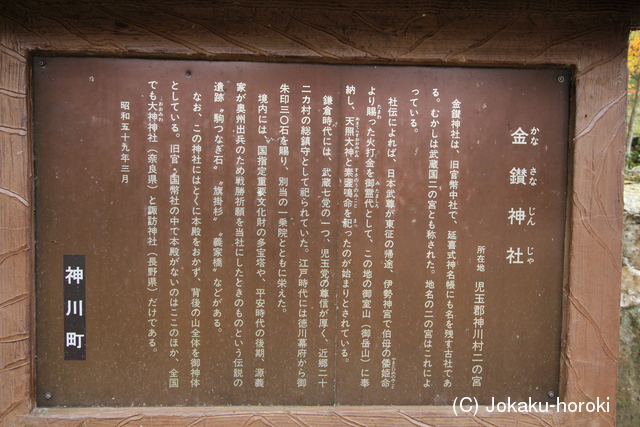 金鑚神社
かな さな じん じゃ
所在地 児玉郡神川村二の宮
金鑚神社は、旧官幣中社で、延喜式神名帳にも名を残す古社であ
る。むかしは武蔵国二の宮とも称された。地名の二の宮はこれによ
っている。
社伝によれば、日本武尊が東征の帰途、伊勢神宮で伯母の倭姫命
より賜った火打金を御霊代として、この地の御室山（御岳山）に奉
納し、天照大神と素盞鳴命を祀ったのが始まりとされている。
鎌倉時代には、武蔵七党の一つ、児玉党の尊信が厚く、近郷二十
二カ村の総鎮守として祀られていた。江戸時代には徳川幕府から御
朱印三〇石を賜り、別当の一乗院とともに栄えた。
境内には、国指定重要文化財の多宝塔や、平安時代の後期、源義
家が奥州出兵のため戦勝祈願を当社にしたときのものという伝説の
遺跡〝駒つなぎ石〟〝旗掛杉〟〝義家橋〟などがある。
なお、この神社にはとくに本殿をおかず、背後の山全体を御神体
としている。旧官・国幣社の中で本殿がないのはここのほか、全国
でも大神神社（奈良県）と諏訪神社（長野県）だけである。
昭和五十九年三月
神川町
(C) Jokaku-horoki